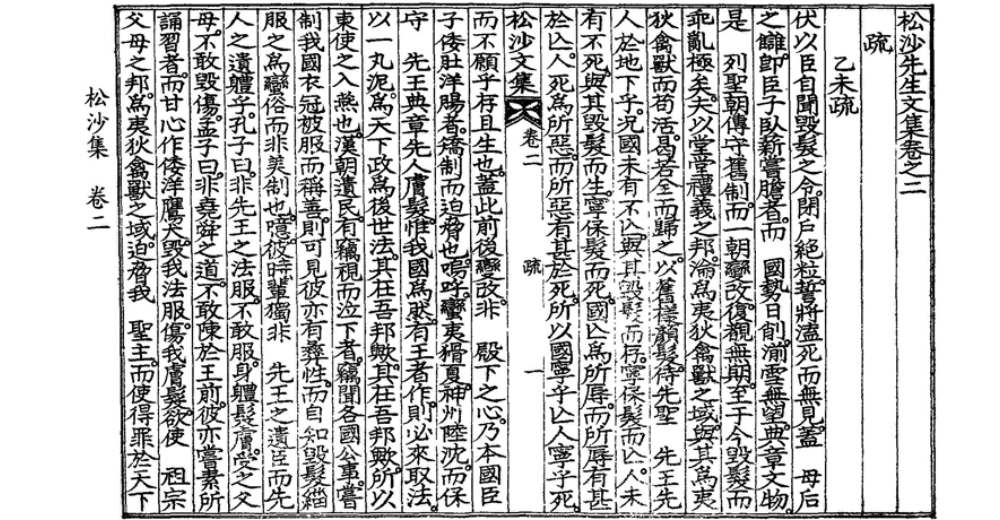 松沙先生文集卷之二
疏
乙未疏
伏以臣自聞毀髮之令閉戶絶粒誓將溘死而無見蓋　母后
之讎卽臣子臥薪嘗膽者而　國勢日削湔雪無望典章文物
是　列聖朝傳守舊制而一朝變改復覩無期至于今毀髮而
乖亂極矣夫以堂堂禮義之邦淪爲夷狄禽獸之域與其爲夷
狄禽獸而苟活曷若全而歸之以舊樣顏髮侍先聖　先王先
人於地下乎况國未有不亾與其毀髮而存寧保髮而亾人未
有不死與其毀髮而生寧保髮而死國亾爲所辱而所辱有甚
於亾人死爲所惡而所惡有甚於死所以國寧乎亾人寧乎死
松沙文集
卷二
疏
一
而不願乎存且生也蓋此前後變改非　殿下之心乃本國臣
子倭肚洋腸者矯制而迫脅也嗚呼蠻夷猾夏神州陸沈而保
守　先王典章先人膚髮惟我國爲然有王者作則必來取法
以一丸泥爲天下政爲後世法其在吾邦歟其在吾邦歟所以
東使之入燕也漢朝遺民有竊視而泣下者竊聞各國公事嘗
制我國衣冠被服而稱善則可見彼亦有彛性而自知毀髮緇
服之爲蠻俗而非美制也噫彼時輩獨非　先王之遺臣而先
人之遺體乎孔子曰非先王之法服不敢服身體髮膚受之父
母不敢毀傷孟子曰非堯舜之道不敢陳於王前彼亦嘗素所
誦習者而甘心作倭洋鷹犬毀我法服傷我膚髮欲使　祖宗
父母之邦爲夷狄禽獸之域迫脅我　聖主而使得罪於天下
松沙集　卷二